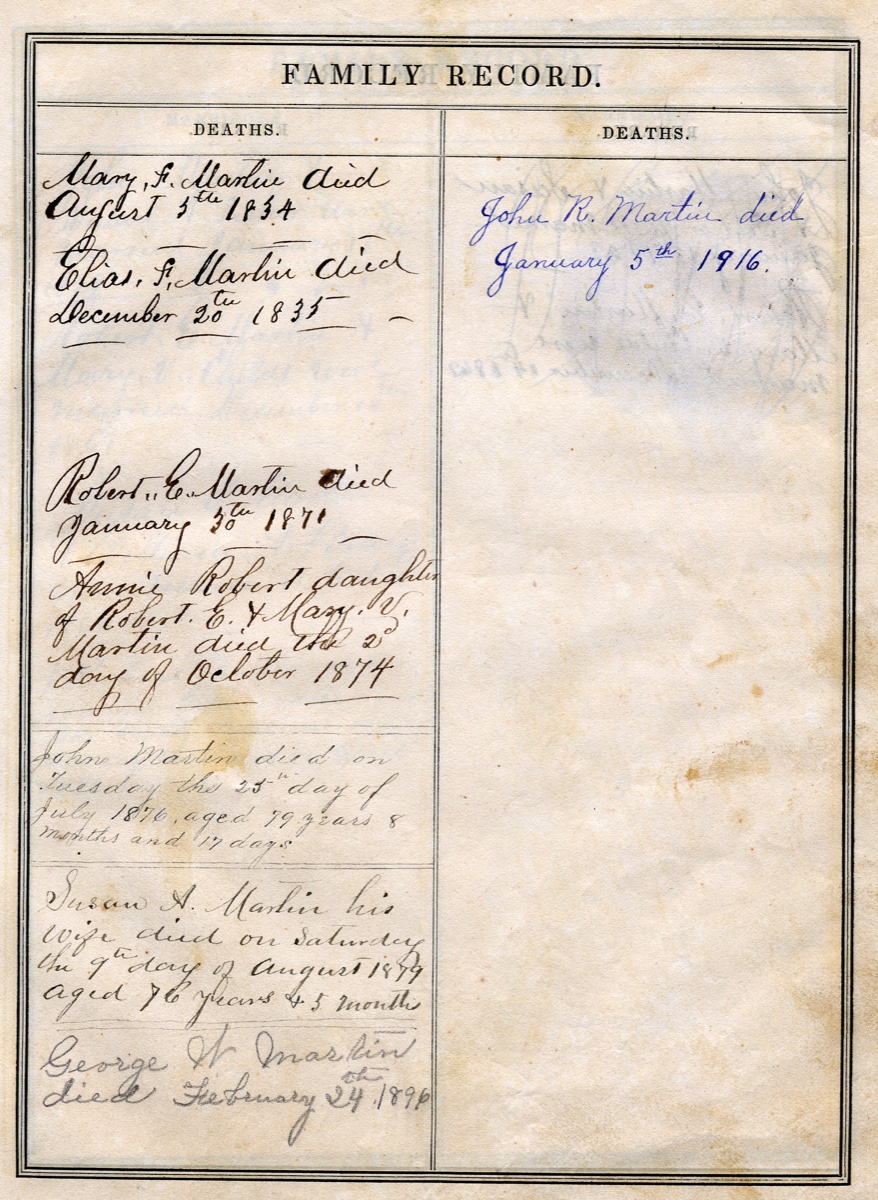 FAMILY RECORD.
DEATHS.
Mary, F. Martin died
August 5th 1834
Elias, F, Martin died
December 20th 1835
Robert,, E. Martin died
January 30th 1871
Annie Robert daughter
of Robert. E. & Mary. V.
Martin died the 2d
day of October 1874
John Martin died on
Tuesday the 25th day of
July 1876, aged 79 years 8
months and 17 days
Susan A. Martin his
wife died on Saturday
the 9th day of August 1879
aged 76 years & 5 months
George W Martin
died February 24th. 1896
DEATHS.
John R. Martin died
January 5th 1916.